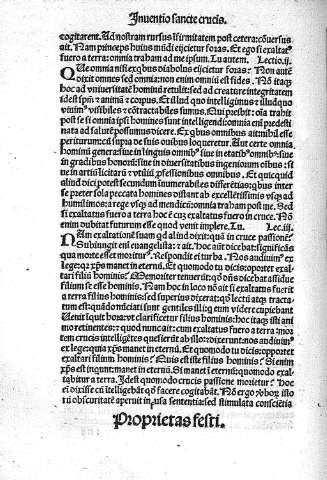 Inuentio sancte crucis.
cogitarent. Ad nostram rursus ĩfirmitatem post cetera: cõuersus
ait. Nam princeps huius mũdi eijcietur foras. Et ego si exaltat⁹
fuero a terra: omnia traham ad me ipsum. Tu autem. Lectio.ij.
QUe omnia nisi ex qbus diabolus eijcietur foras? Non autẽ
dixit omnes sed omnia: non enim omniũ est fides? Nõ itaqȝ
hoc ad vniuersitatẽ hominũ retulit: sed ad creature integritatem
idest spm̃: animã ⁊ corpus. Et illud quo intelligimus: illud quo
viuim⁹ visibiles ⁊ cõtractabiles sumus. Qui
post se si omnia ipsi homines sunt intelligendi: omnia eni predesti
nata ad salutẽ possumus dicere. Ex qbus omnibus ait nihil esse
periturum: cũ supra de suis ouibus loqueretur. Aut certe omnia
hominũ genera: siue in linguis omnib⁹ siue in etatib⁹ omnib⁹: siue
in gradibus honorũ: siue in diuersitatibus ingeniorum oĩbus: si
ue in artiũ licitarũ ⁊ vtiliũ ꝓfessionibus omnibus. Et quicquid
aliud dici potest secundum innumerabiles differẽtias: qbus inter
se preter sola peccata homines distant ab excellẽtissimis vsqȝ ad
humilimos: a rege vsqȝ ad mendicũ: omnia traham post me. Sed
si exaltatus fuero a terra hoc ẽ cuȝ exaltatus fuero in cruce. Nõ
enim dubitat futurum esse quod venit implere. Tu. Lec.iij.
NAm exaltationẽ suam qd aliud dixit: quã in cruce passionẽ?
Subiungit eni euangelista: ⁊ ait. hoc autẽ dicebat significãs
qua morte esset moritur⁹. Respondit ei turba. Nos audiuim⁹ ex
lege: qꝛ xp̃s manet in eternũ. Et quomodo tu dicis: oportet exal
tari filium hominis? Memoriter tenuerũt: qđ dñs dicebat assidue
filium se esse hominis. Nam hoc in loco nõ ait si exaltatus fuerit
a terra filius hominis: sed superius dixerat: qđ lectũ atqȝ tracta
tum est: quãdo nũciati sunt gentiles illi qui eum videre cupiebant
Uenit inquit hora: vt clarificetur filius hominis: hoc itaqȝ isti ani
mo retinentes: ⁊ quod nunc ait: cum exaltatus fuero a terra: mor
tem crucis intelligẽtes quesierũt ab illo: ⁊ dixerunt. nos audiuim⁹
ex lege: quia xp̃s manet in eternũ. Et quomodo tu dicis: oportet
exaltari filium hominis? Quis est iste filius hominis? Si enim
xp̃s est inquiũt: manet in eternũ. Si manet ĩ eternũ: quomodo exal
tabitur a terra. Idest quomodo crucis passione morietur? hoc
ei dixisse eũ ĩtelligebãt: qđ facere cogitabãt. Nõ ergo ꝟboꝝ isto
rũ obscuritatẽ aperuit ĩfusa sententia: sed stimulata consciẽtia
Proprietas festi.